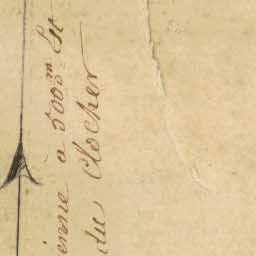 ienne à 500m Est
du Clocher